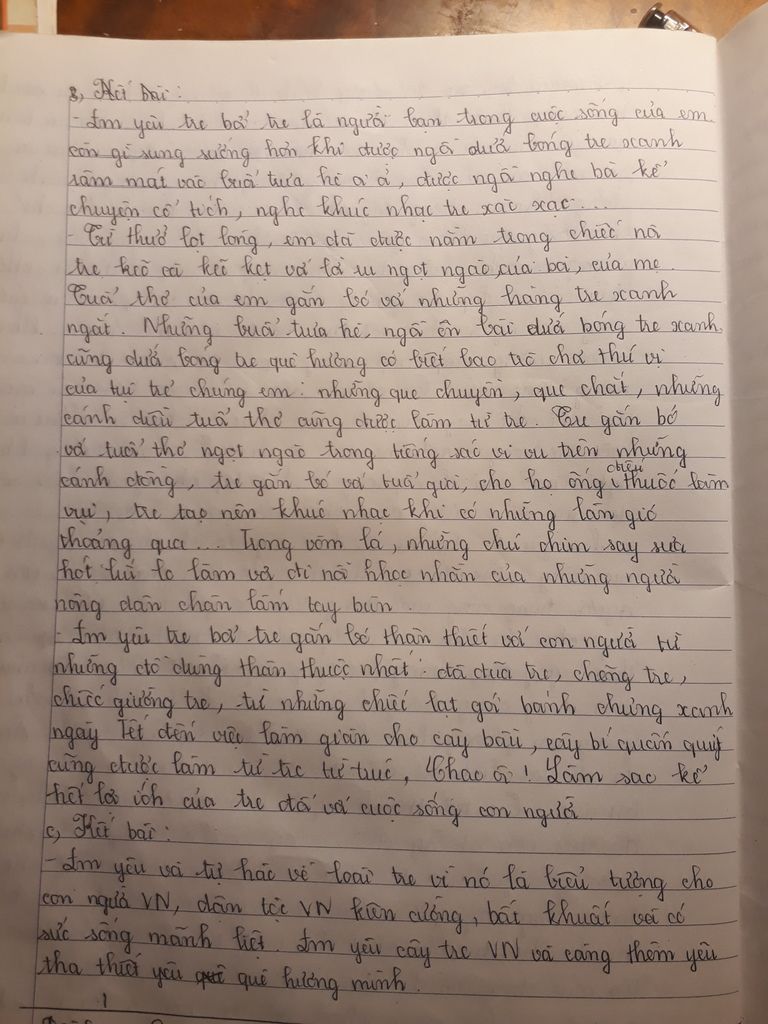 B, Kết bài :
- Em yêu tre bởi tre là người bạn trong cuộc sống của em
còn gì sung sướng hơn khi được ngồi dưới bóng tre xanh
râm mát vào buổi trưa hè oi ả, được ngồi nghe bà kể
chuyện cổ tích, nghe khúc nhạc tre xào xạc...
- Từ thuở lọt lòng, em đã được nằm trong chiếc nôi
tre kẽo cà kẽo kẹt với lời ru ngọt ngào của bà, của mẹ.
Tuổi thơ của em gắn bó với những hàng tre xanh
ngắt. Những buổi trưa hè, ngồi ôn bài dưới bóng tre xanh,
cũng dưới bóng tre quê hương có biết bao trò chơi thú vị
của tụi trẻ chúng em : những que chuyền, que chắt, những
cánh diều tuổi thơ cũng được làm từ tre. Tre gắn bó
với tuổi thơ ngọt ngào trong tiếng sáo vi vu trên những
cánh đồng, tre gắn bó với tuổi già, cho họ ống điếu thuốc làm
vui, tre tạo nên khúc nhạc khi có những làn gió
thoảng qua... Trong vòm lá, những chú chim say sưa
hót líu lo làm vơi đi nỗi nhọc nhằn của những người
nông dân chân lấm tay bùn.
- Em yêu tre bởi tre gắn bó thân thiết với con người từ
những đồ dùng thân thuộc nhất : đôi đũa tre, chõng tre,
chiếc giường tre, từ những chiếc lạt gói bánh chưng xanh
ngày Tết đến việc làm giàn cho cây bầu, cây bí quấn quýt
cũng được làm từ tre từ trúc, Chao ôi ! Làm sao kể
hết lợi ích của tre đối với cuộc sống con người
c, Kết bài :
- Em yêu và tự hào về loài tre vì nó là biểu tượng cho
con người VN, dân tộc VN kiên cường, bất khuất và có
sức sống mãnh liệt. Em yêu cây tre VN và càng thêm yêu
tha thiết yêu quê hương mình.